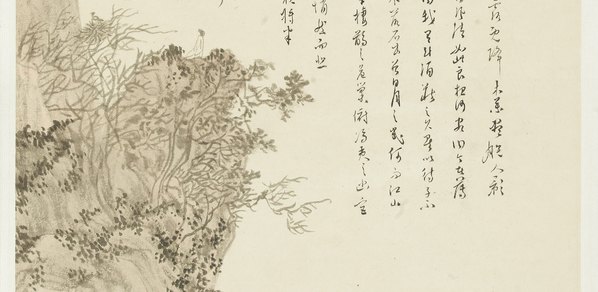 露既降木葉盡脫人影
風清如此良夜何客曰今者薄
我有斗酒藏之久矣以待子不
水落石出曾日月之幾何而江山
棲鶻之危巢俯馮夷之幽宮
悄然而悲
夜將半